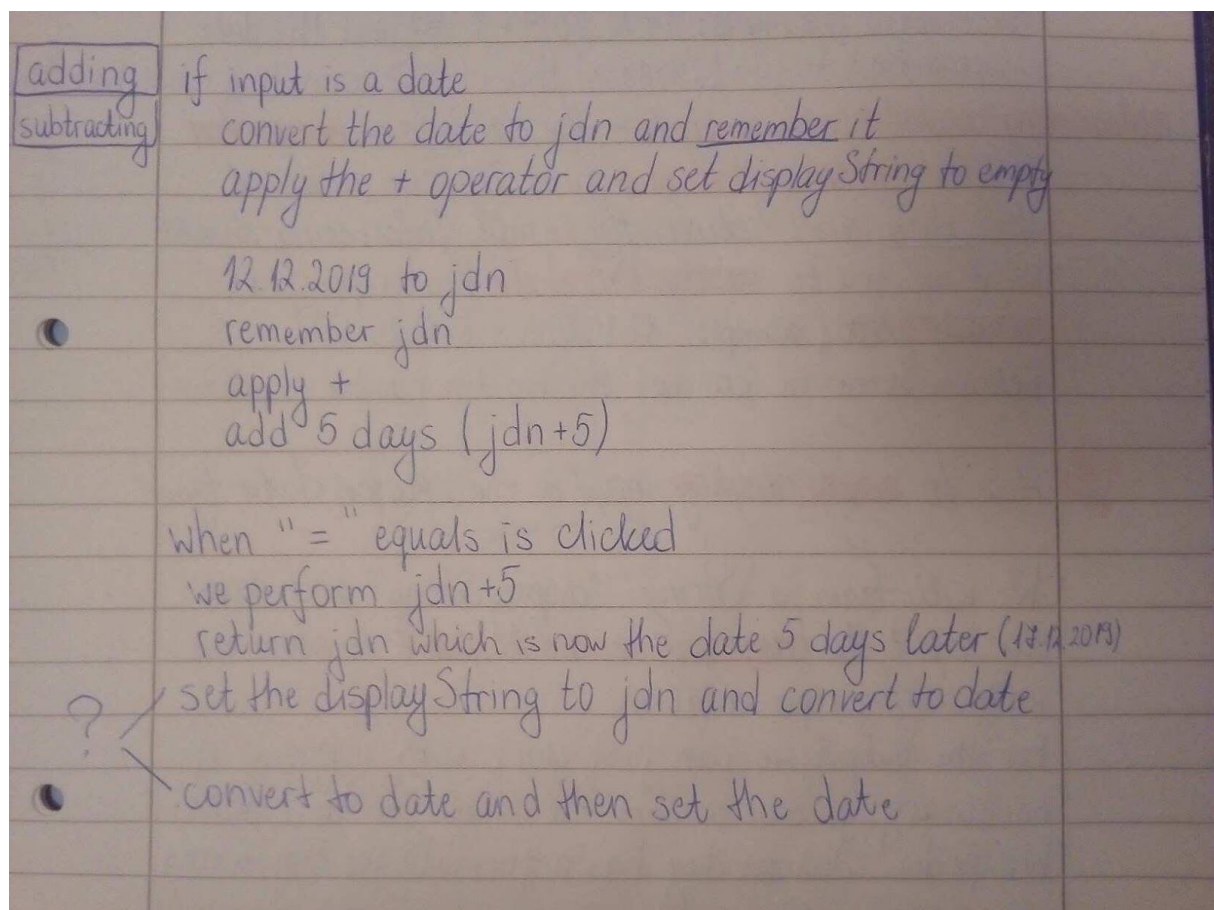 adding
subtracting
if input is a date
convert the date to jdn and remember it
apply the + operator and set displayString to empty
12.12.2019 to jdn
remember jdn
apply +
add 5 days (jdn+5)
when "=" equals is clicked
we perform jdn+5
return jdn which is now the date 5 days later (17.12.2019)
set the displayString to jdn and convert to date
?
convert to date and then set the date